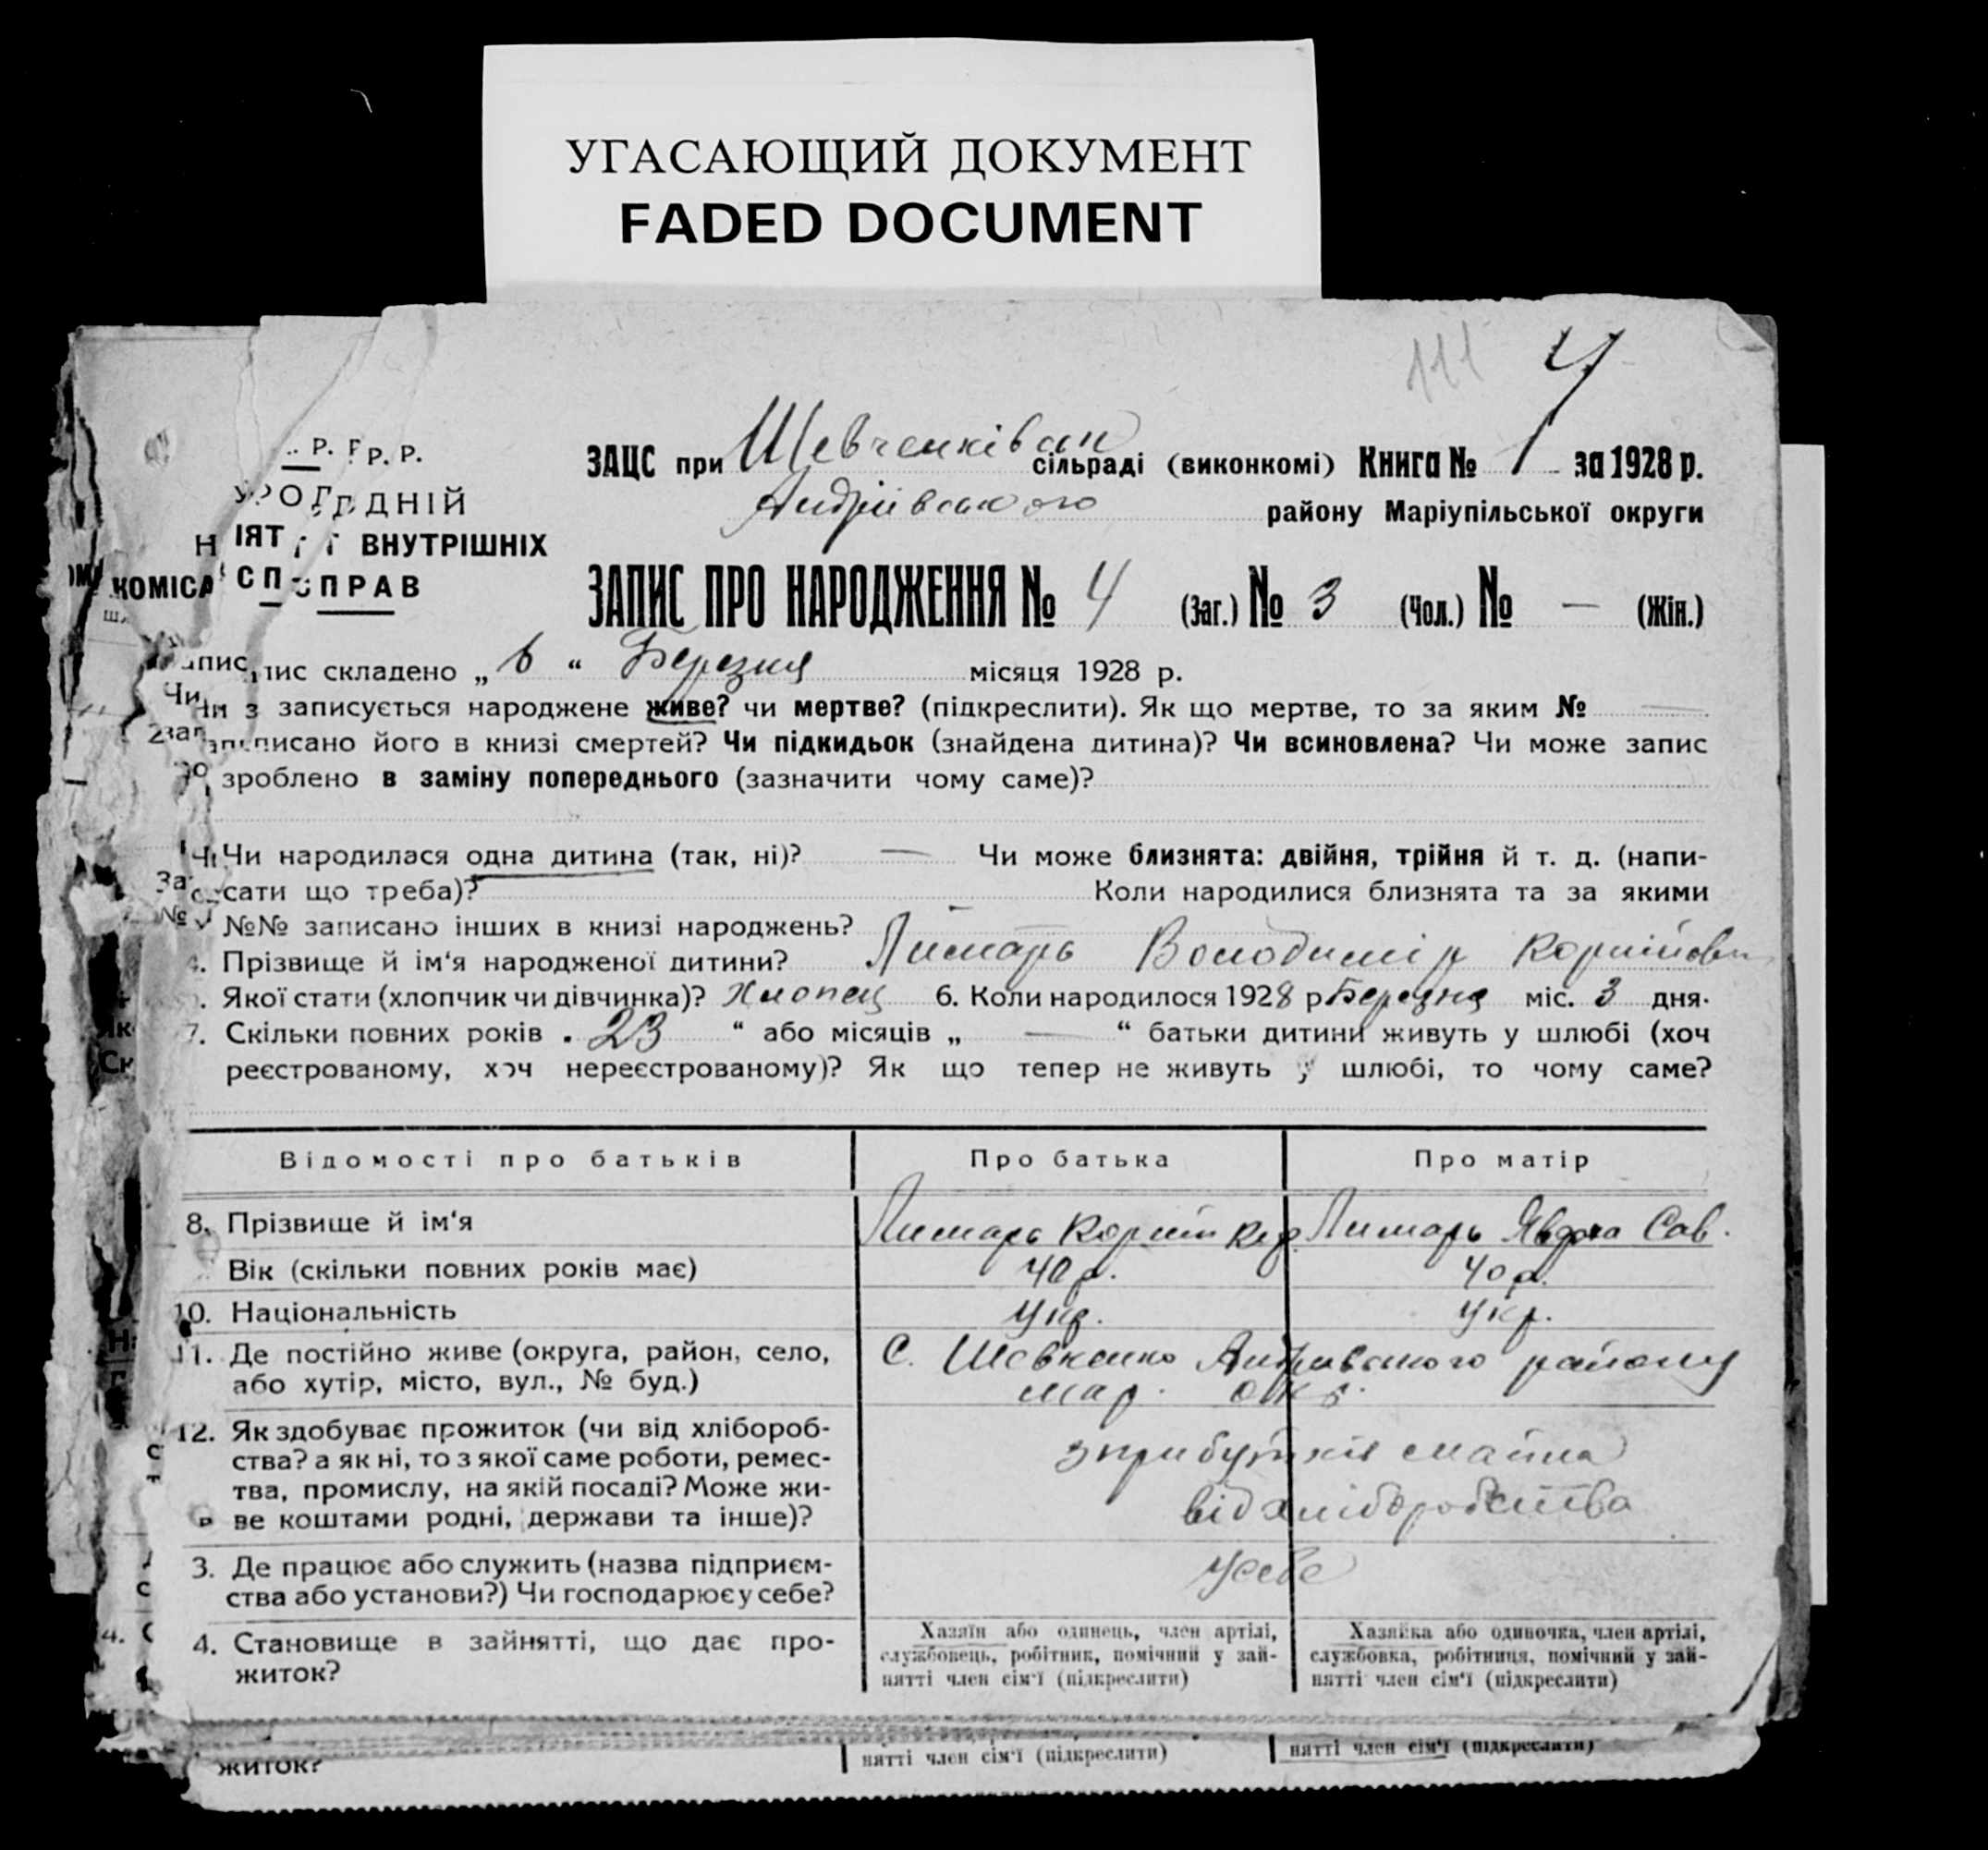 УГАСАЮЩИЙ ДОКУМЕНТ
FADED DOCUMENT
111 4
Р. Р. Р.
ДНІЙ
ВНУТРІШНІХ
КОМІСА СПРАВ
ЗАЦС при Шевченківськ сільраді (виконкомі) Книга № 1 за 1928 р.
Андріївського району Маріупільської округи
ЗАПИС ПРО НАРОДЖЕННЯ № 4 (Заг.) № 3 (Чол.) № — (Жін.)
пис складено „ 6 “ Березня місяця 1928 р.
записується народжене живе? чи мертве? (підкреслити). Як що мертве, то за яким № —
писано його в книзі смертей? Чи підкидьок (знайдена дитина)? Чи всиновлена? Чи може запис
зроблено в заміну попереднього (зазначити чому саме)?
Чи народилася одна дитина (так, ні)? — Чи може близнята: двійня, трійня й т. д. (напи-
сати що треба)? Коли народилися близнята та за якими
№№ записано інших в книзі народжень? —
4. Прізвище й ім‘я народженої дитини? Лимарь Володимір Корнійович
. Якої стати (хлопчик чи дівчинка)? Хлопец 6. Коли народилося 1928 р Березня міс. 3 дня.
7. Скільки повних років „ 23 “ або місяців „ — “ батьки дитини живуть у шлюбі (хоч
реєстрованому, хоч нереєстрованому)? Як що тепер не живуть у шлюбі, то чому саме?
Відомості про батьків Про батька Про матір
8. Прізвище й ім‘я Лимарь Корній Лимарь Явдоха Сав.
Вік (скільки повних років має) 40 р. 40 р.
10. Національність Укр. Укр.
11. Де постійно живе (округа, район, село, С. Шевченко Андриевського району
або хутір, місто, вул., № буд.) мар. окр.
12. Як здобуває прожиток (чи від хлібороб-
ства? а як ні, то з якої саме роботи, ремес- з прибутків майна
тва, промислу, на якій посаді? Може жи- від хліборобства
ве коштами родні, держави та інше)?
3. Де працює або служить (назва підприєм- у себе
ства або установи?) Чи господарює у себе?
4. Становище в зайнятті, що дає про-
житок?
Хазяїн або одинець, член артілі,
службовець, робітник, помічний у зай-
нятті член сім‘ї (підкреслити)
Хазяйка або одиночка, член артілі,
службовка, робітниця, помічний у зай-
нятті член сім‘ї (підкреслити)
житок? нятті член сім‘ї (підкреслити) нятті член сім‘ї (підкреслити)